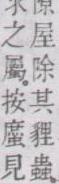 隙屋除其貍蟲
求之屬。按䗪見